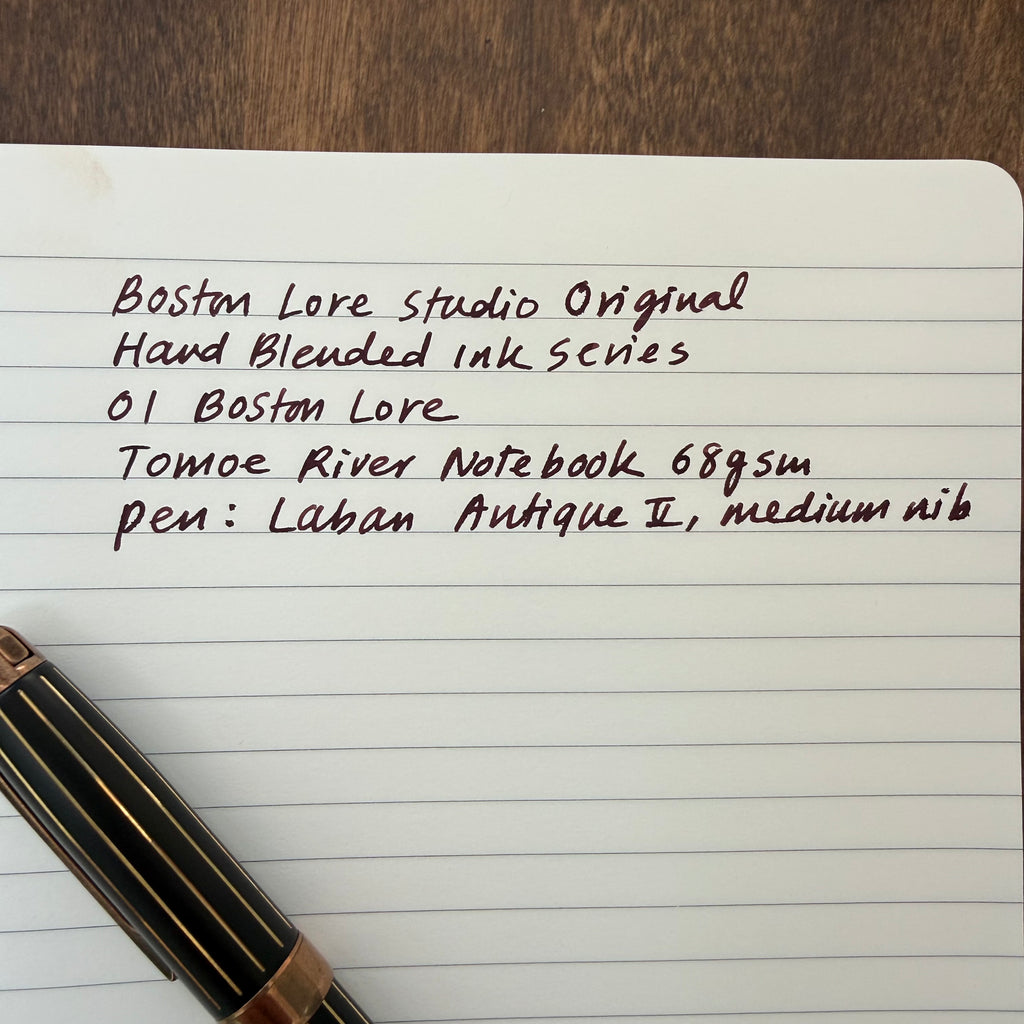 Boston Lore Studio Original
Hand Blended Ink Series
01 Boston Lore
Tomoe River Notebook 68gsm
pen: Laban Antique II, medium nib